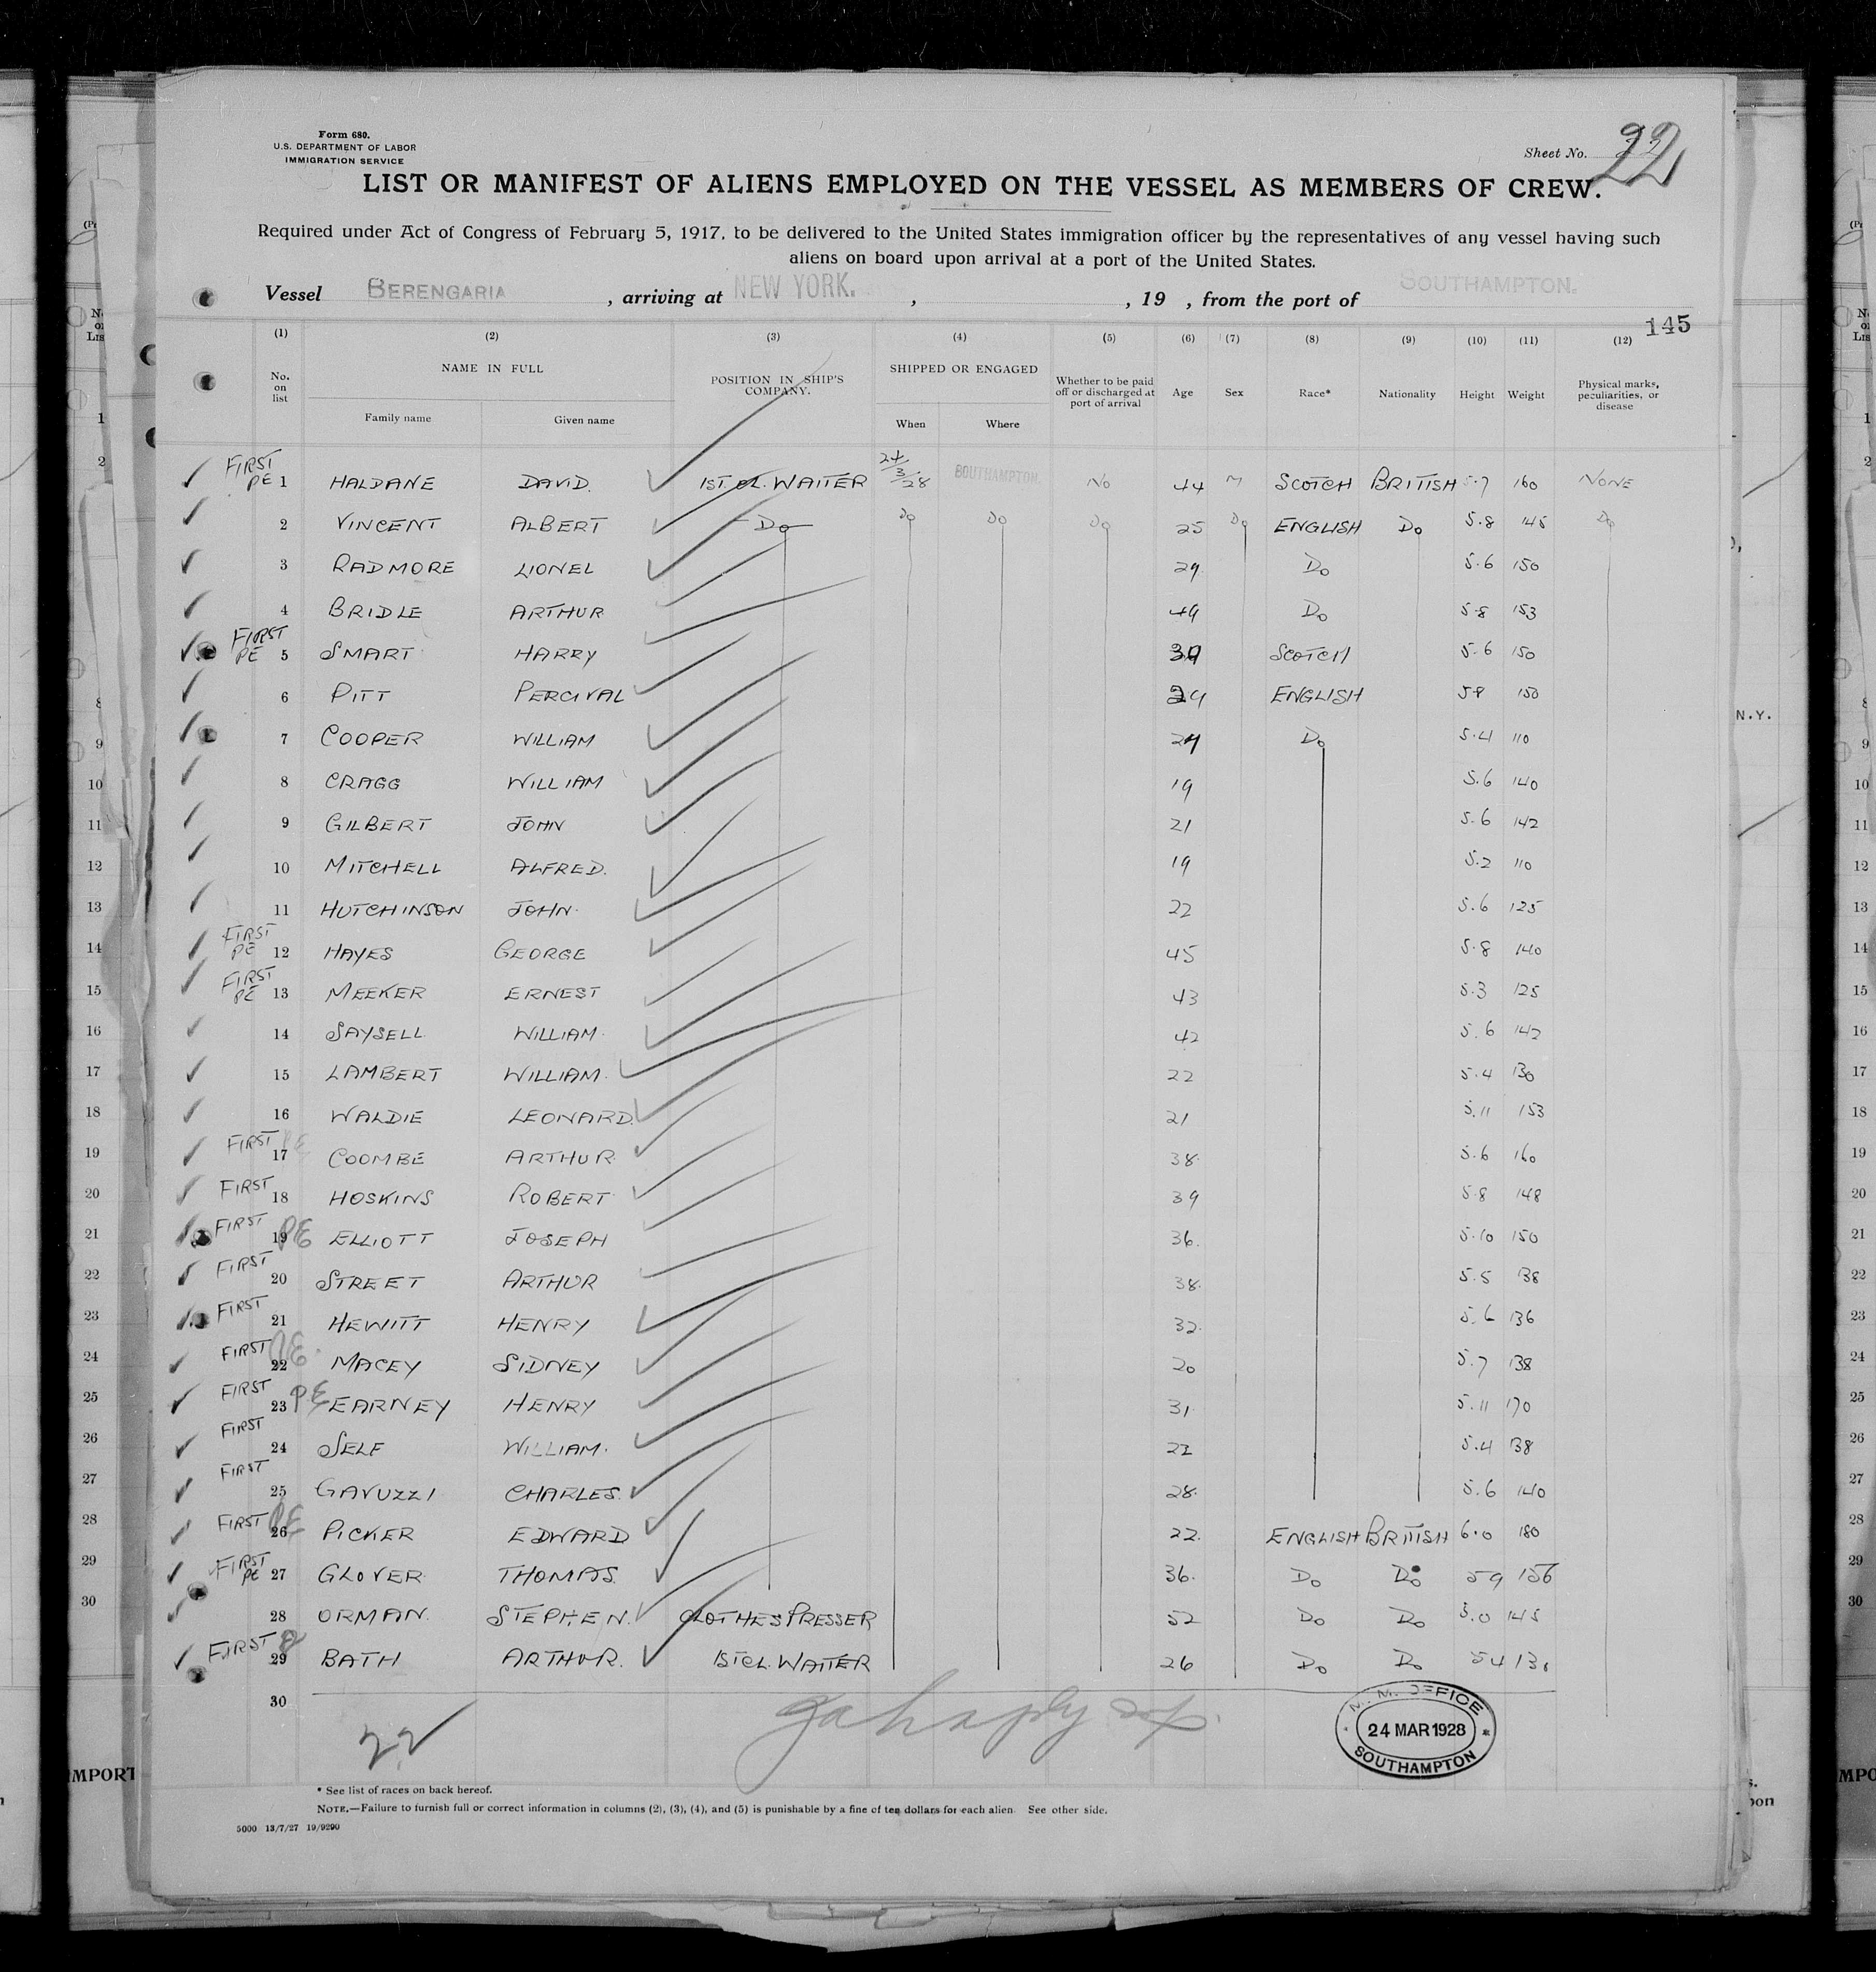 Form 680.
U.S. DEPARTMENT OF LABOR
IMMIGRATION SERVICE
Sheet No. 22
LIST OR MANIFEST OF ALIENS EMPLOYED ON THE VESSEL AS MEMBERS OF CREW.
Required under Act of Congress of February 5, 1917, to be delivered to the United States immigration officer by the representatives of any vessel having such
aliens on board upon arrival at a port of the United States.
Vessel BERENGARIA, arriving at NEW YORK. , , 19 , from the port of SOUTHAMPTON.
145
(1) (2) (3) (4) (5) (6) (7) (8) (9) (10) (11) (12)
No. on list NAME IN FULL POSITION IN SHIP'S COMPANY. SHIPPED OR ENGAGED Whether to be paid off or discharged at port of arrival Age Sex Race* Nationality Height Weight Physical marks, peculiarities, or disease
Family name Given name When Where
FIRST PE 1 HALDANE DAVID. 1ST CL. WAITER 24/3/28 SOUTHAMPTON. No 44 M SCOTCH BRITISH 5.7 160 NONE
2 VINCENT ALBERT Do Do Do Do 25 Do ENGLISH Do 5.8 145 Do
3 RADMORE LIONEL 29 Do 5.6 150
4 BRIDLE ARTHUR 49 Do 5.8 153
FIRST PE 5 SMART HARRY 39 SCOTCH 5.6 150
6 PITT PERCIVAL ENGLISH 5 8 150
7 COOPER WILLIAM Do 5.4 110
8 CRAGG WILLIAM 19 5.6 140
9 GILBERT JOHN 21 5.6 142
10 MITCHELL ALFRED. 19 5.2 110
11 HUTCHINSON JOHN. 22 5.6 125
FIRST PE 12 HAYES GEORGE 45 5.8 140
FIRST PE 13 MEEKER ERNEST 43 5.3 125
14 SAYSELL WILLIAM. 42 5.6 142
15 LAMBERT WILLIAM. 22 5.4 130
16 WALDIE LEONARD. 21 5.11 153
FIRST PE 17 COOMBE ARTHUR. 38. 5.6 160
FIRST 18 HOSKINS ROBERT 39 5.8 148
FIRST PE 19 ELLIOTT JOSEPH 36. 5.10 150
FIRST 20 STREET ARTHUR 38. 5.5 138
FIRST 21 HEWITT HENRY 32. 5.6 136
FIRST PE 22 MACEY SIDNEY 20 5.7 138
FIRST PE 23 EARNEY HENRY 31. 5.11 170
FIRST 24 SELF WILLIAM. 22 5.4 138
FIRST 25 GAVUZZI CHARLES. 28. 5.6 140
FIRST PE 26 PICKER EDWARD 22. ENGLISH BRITISH 6.0 180
FIRST PE 27 GLOVER THOMAS. 36. Do Do 5 9 156
28 ORMAN. STEPHEN. CLOTHES PRESSER 52 Do Do 5.0 145
FIRST 29 BATH ARTHUR. 1ST CL. WAITER 26 Do Do 5 4
30
22
M. M. OFFICE
24 MAR 1928
SOUTHAMPTON
* See list of races on back hereof.
NOTE.—Failure to furnish full or correct information in columns (2), (3), (4), and (5) is punishable by a fine of ten dollars for each alien. See other side.
5000 13/7/27 19/9290